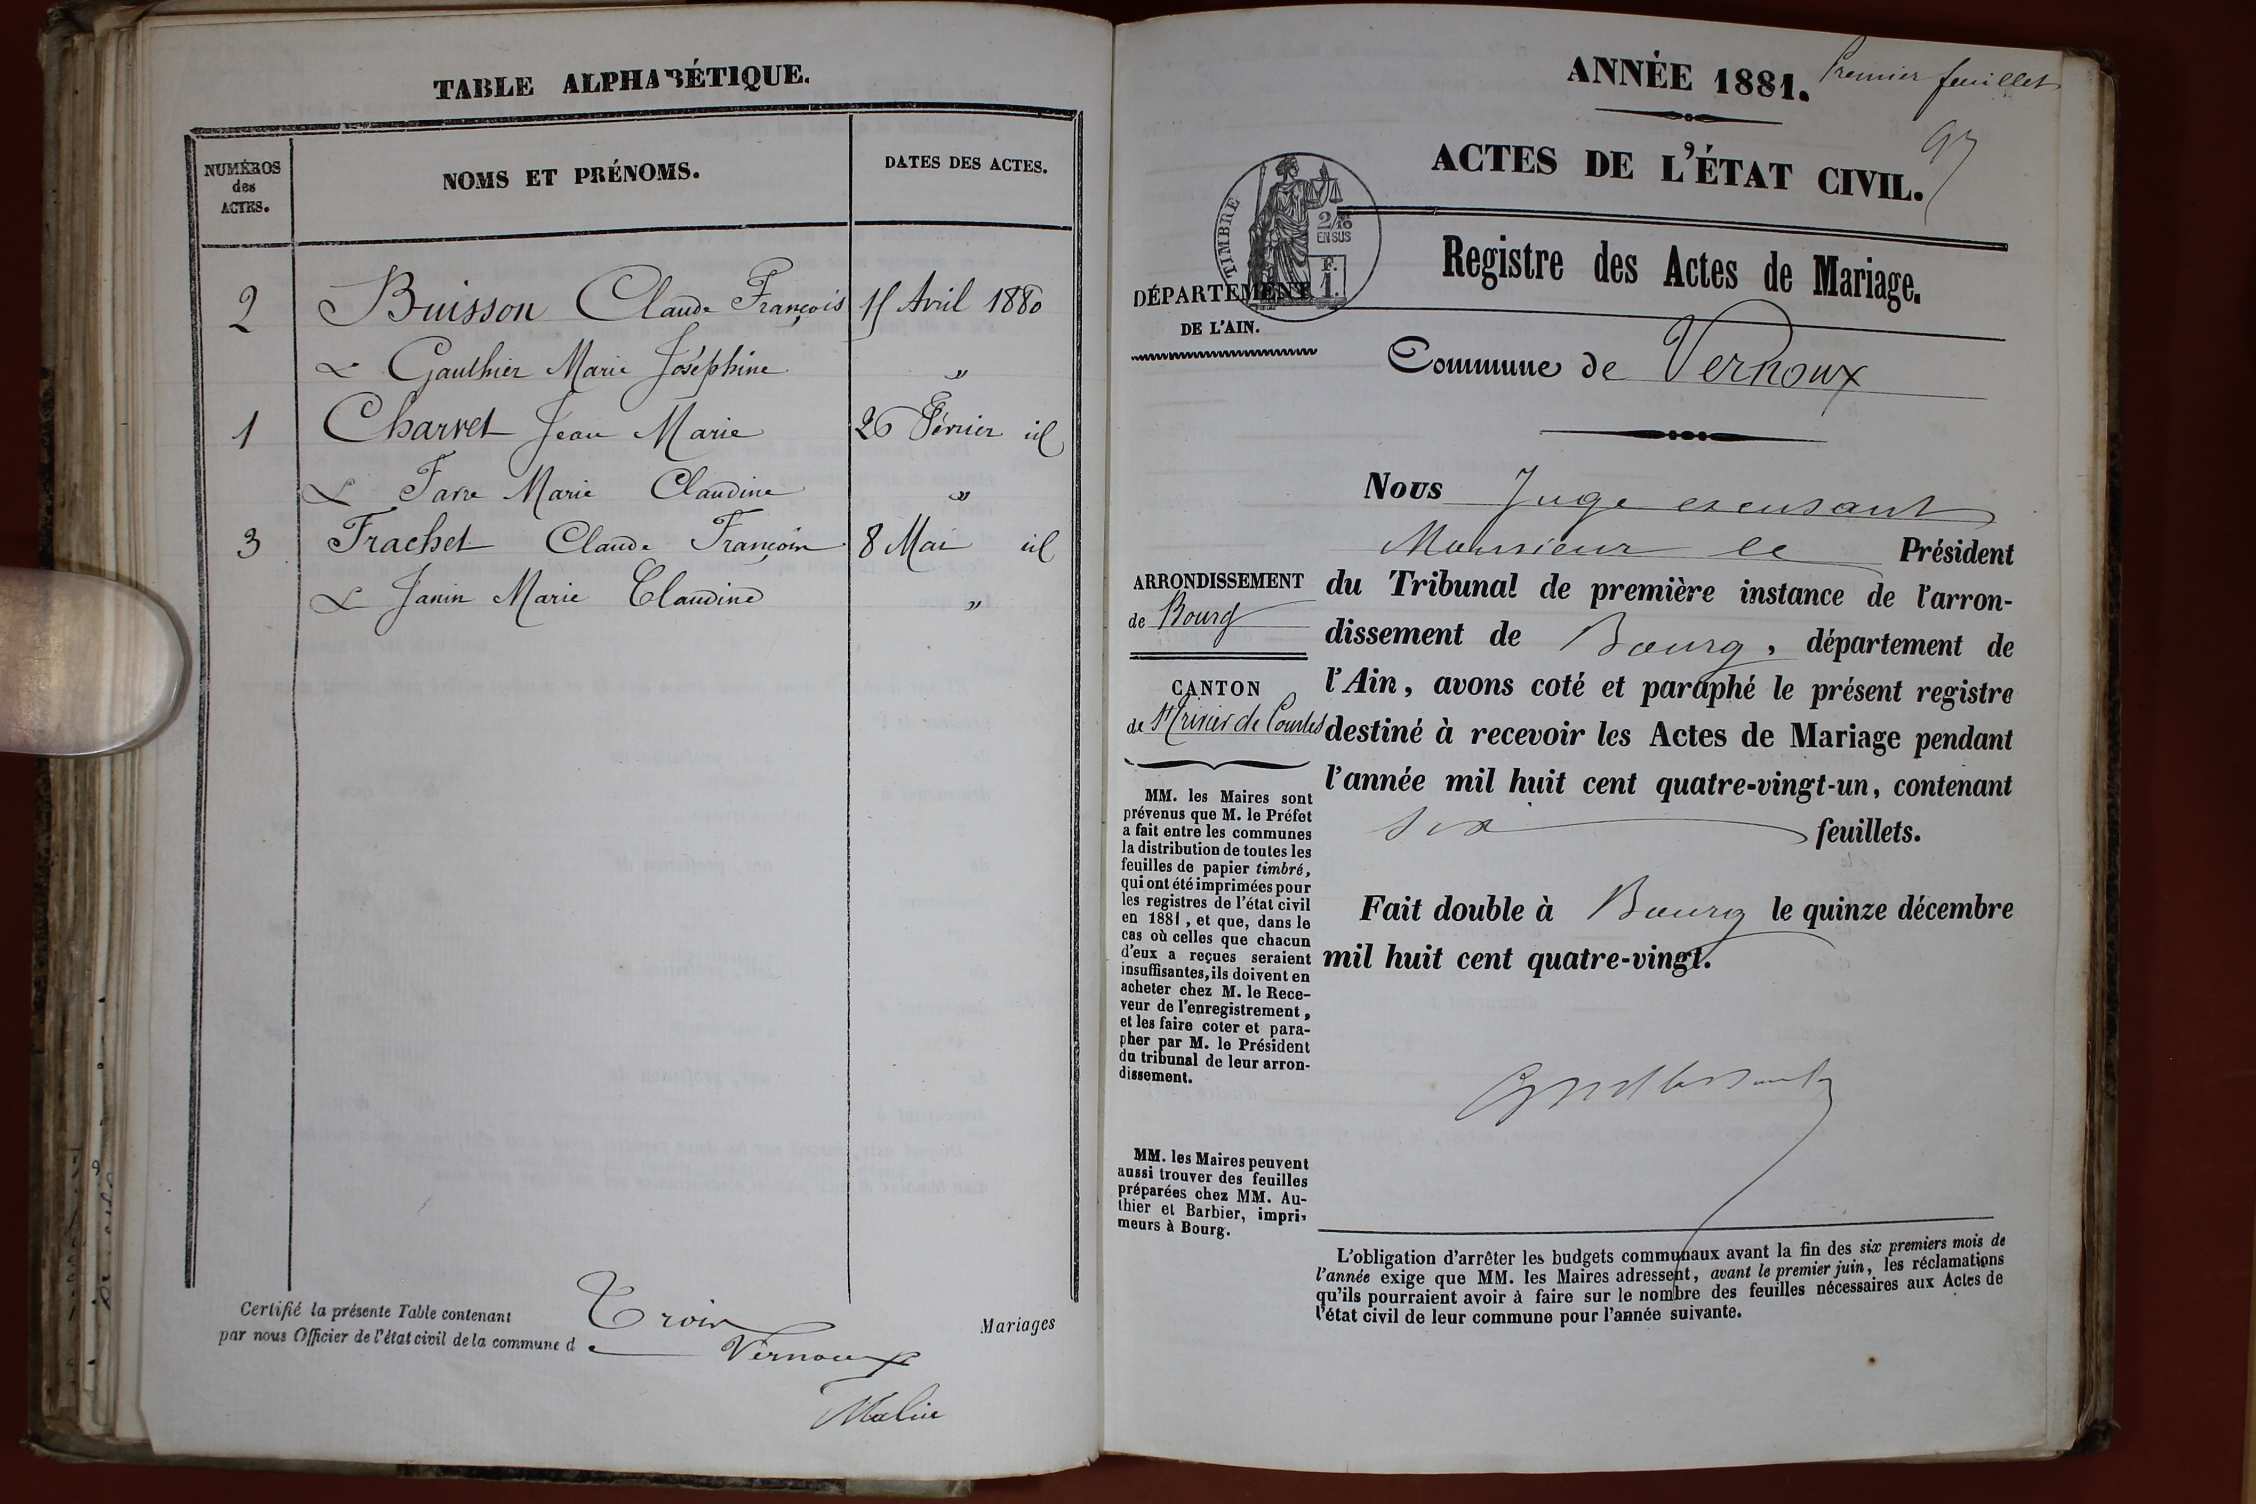 TABLE ALPHABÉTIQUE.
NUMÉROS des ACTES.
NOMS ET PRÉNOMS.
DATES DES ACTES.
2 Buisson Claude François 15 Avril 1880
& Gauthier Marie Joséphine "
1 Charvet Jean Marie 26 Février id
& Favre Marie Claudine "
3 Frachet Claude François 8 Mai id
& Janin Marie Claudine "
Certifié la présente Table contenant Trois Mariages
par nous Officier de l'état civil de la commune de Vernoux
ANNÉE 1881.
Premier feuillet
97
ACTES DE L'ÉTAT CIVIL.
TIMBRE
2/10 EN SUS
F. 1.
Registre des Actes de Mariage.
DÉPARTEMENT
DE L'AIN.
Commune de Vernoux
Nous Juge excusant
Monsieur le Président
du Tribunal de première instance de l'arron-
dissement de Bourg, département de
l'Ain, avons coté et paraphé le présent registre
destiné à recevoir les Actes de Mariage pendant
l'année mil huit cent quatre-vingt-un, contenant
six feuillets.
Fait double à Bourg le quinze décembre
mil huit cent quatre-vingt.
ARRONDISSEMENT
de Bourg
CANTON
de St Trivier de Courtes
MM. les Maires sont
prévenus que M. le Préfet
a fait entre les communes
la distribution de toutes les
feuilles de papier timbré,
qui ont été imprimées pour
les registres de l'état civil
en 1881, et que, dans le
cas où celles que chacun
d'eux a reçues seraient
insuffisantes, ils doivent en
acheter chez M. le Rece-
veur de l'enregistrement,
et les faire coter et para-
pher par M. le Président
du tribunal de leur arron-
dissement.
MM. les Maires peuvent
aussi trouver des feuilles
préparées chez MM. Au-
thier et Barbier, impri-
meurs à Bourg.
L'obligation d'arrêter les budgets communaux avant la fin des six premiers mois de
l'année exige que MM. les Maires adressent, avant le premier juin, les réclamations
qu'ils pourraient avoir à faire sur le nombre des feuilles nécessaires aux Actes de
l'état civil de leur commune pour l'année suivante.